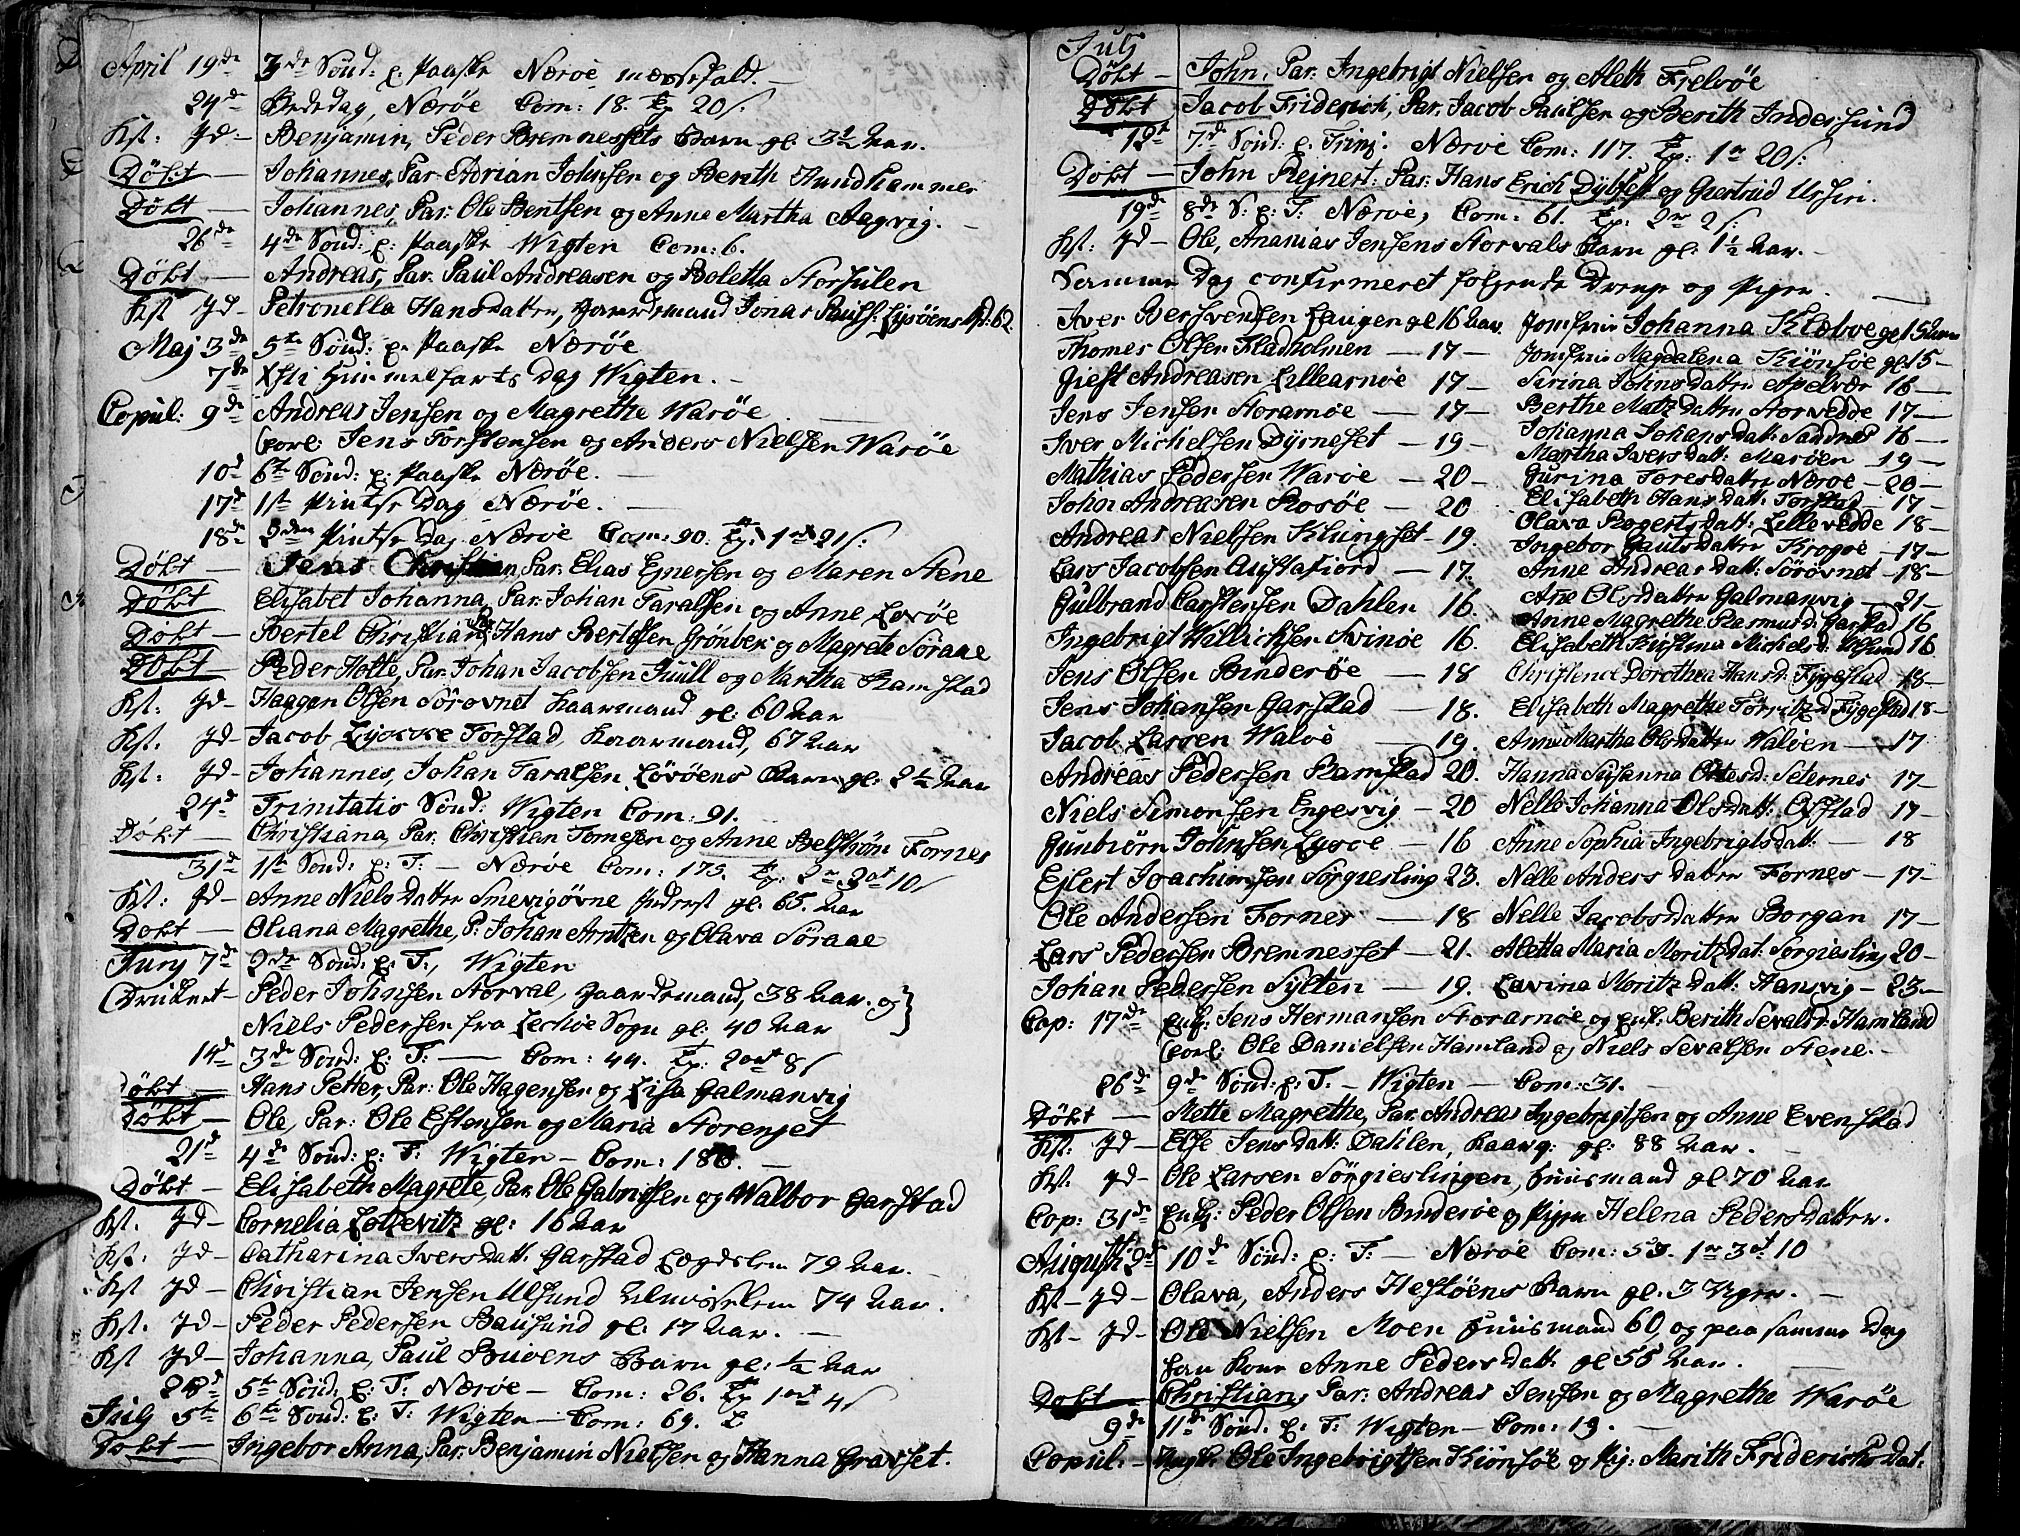 April 19de 3de Sønd: p. Paaske Nærøe messefald. -
24de Bededag, Nærøe Com: 18. 20 s.
Kst. Jd - Benjamin, Peder Bremnessets Barn gl: 3½ Aar.
Døbt - Johannes, Par: Adrian Johnsen og Berith Hundhammer
Døbt - Johannes, Par: Ole Bentsen og Anne Martha Aagvig. -
26de 4de Sønd: p: Paaske Wigten Com: 6.
Døbt - Andreas, Par: Paul Andreasen og Boletta Storsulen
Kst Jd - Petronella Hansdatter, Gaardmand Jonas Paulss: Lysøens 62
Maj 3de 5te Sønd: p: Paaske Nærøe
7de Xsti Himmelfarts Dag Wigten. -
Copul: 9de Andreas Jensen og Magrethe Warøe
Forl: Jens Torstensen og Anders Nielsen Warøe
10d 6te Sønd: p: Paaske Nærøe. -
17d 1st Pintse Dag Nærøe. -
18de 2den Pintse Dag Nærøe Com: 90. 1 21 s.
Døbt - Jens Christian, Par: Elias Ejnersen og Maren Stene
Døbt - Elisabet Johanna, Par: Johan Taralsen og Anne Lovøe
Døbt - Bertel Christian, Par: Hans Bertelsen Grønbek og Magrete Søraae
Døbt - Peder Holte, Par: Johan Jacobsen Juull og Martha Ramstad
Kst: Jd - Haagen Olsen Sørovnet Kaarmand gl: 60 Aar
Kst. Jd - Jacob Torstad, Kaarmand, 67 Aar
Kst: Jd - Johannes, Johan Taralsen Løvøens Barn gl: 2½ Aar
24d Trinitatis Sønd: Wigten Com: 91.
Døbt - Christiana, Par: Christian Tomesen og Anne Fornes
31d 1st Sønd: p: T: - Nærøe Com: 175. 2 3 ort 10 s
Kst: Jd - Anne Niels Datter Smevigøvne Inderst gl: 65. Aar
Døbt - Oliana Magrethe, P: Johan Arntzen og Olava Søraae
Juny 7de 2de Sønd: p: T:, Wigten
Druknet - Peder Johnsen Storval, Gaardmand, 38 Aar. og }
Niels Pedersen fra Lechøe Sogn gl: 40 Aar
14d 3de Sønd: p: T: - Com: 44. 2 ort 8 s
Døbt - Hans Petter, Par: Ole Hagensen og Lisa Galmanvig
Døbt - Ole, Par: Ole Estensen og Maria Storenget
21d 4de Sønd: p: T: Wigten - Com: 186. -
Døbt - Elisabeth Magrete, Par: Ole Gabrielsen og Walbor Garstad
Kst. Jd - Cornelia gl: 16 Aar
Kst: Jd - Catharina Iversdatt: Garstad 79 Aar. -
Kst Jd - Christian Jensen Ulsund 74 Aar.
Kst. Jd - Peder Pedersen Bausund gl: 17 Aar. -
Kst Jd - Johanna, Paul Buøens Barn gl: ½ Aar
28d 5te Sønd: p: T: Nærøe - Com: 26. 1 ort 4 s
July 5te 6te Sønd: p: T: Wigten - Com: 69.
Døbt - Ingebor Anna, Par: Benjamin Nielsen og Hanna Grasset.
July
Døbt - John, Par: Ingebrigt Nielsen og Aleth Frelsøe
Døbt Jacob Friderich, Par: Jacob Paulsen og Berith Indersund
12t 7de Sønd: p: Trinj: Nærøe Com: 117. 1 20 s.
Døbt - John Rejnert: Par: Hans Erich Dybfest og Giertrud Ursin.
19de 8de S: p: T: Nærøe, Com: 61. 2 2 s.
Kst: Jd - Ole, Ananias Jensens Storvals Barn gl: 1½ Aar.
Samme Dag confirmeret følgende Drenge og Piger. -
Iver Bersvendsen Laugen gl 16 Aar Jomfrue Johanna Klæboe gl 15 Aar
Thomes Olsen Fladholmen - 17 - Jomfrue Magdalena Kiønsøe gl 15 -
Giest Andreasen Lillearnøe 17 - Sirina Johns datter Apelvær 16 -
Jens Jensen Storarnøe - 17 - Berthe Matz datter Storvedde 17 -
Iver Michelsen Dyrneset - 19 - Johanna Johans datt: Sandnes 16 -
Mathias Pedersen Warøe - 20 - Martha Ivers datt: Marøen - 19 -
John Andreasen Rosøe - 20 Gurina Toresdatter Nærøe - 20 -
Andreas Nielsen Klungset - 19. Elisabeth Hans datt: Torstad - 17 -
Lars Jacobsen Austafiord - 17. Olava Rogertsdatt: Lillevedde 18 -
Gulbrand Carstensen Dahlen 16. Ingebor Gautsdatter Krogøe - 17 -
Ingebrigt Willichsen Svinøe 16. Anne Andreas datt: Sørovnet - 18 -
Jens Olsen Binderøe - 18 Ane Olsdatter Galmanvig - 21 -
Jens Johansen Garstad - 18. Anne Magrethe Rasmusd: Garstad 16
Jacob Larsen Waløe - 19. Elisabeth Kristina Michelsd: Ulsund 16
Andreas Pedersen Ramstad 20. Christence Dorothea Hansd: Fygestad - 18 -
Niels Simonsen Engesvig - 20 Elisabeth Magrethe d: Fygestad 18 -
Gunbiørn Johnsen Lysøe - 16 Anne Martha Olsdatter Waløen - 17
Ejlert Joachimsen Sørgiesling 23. Hanna Susanna Ottesd: Seternes 17 -
Ole Andersen Fornes - 18 Nelle Johanna Olsdatt: Ofstad 17 -
Lars Pedersen Bremnesset - 21. Anne Sophia Ingebrigtsdatt: - 18
Johan Pedersen Sylten - 19. Nelle Anders datter Fornes - 17 -
Nelle Jacobs datter Borgan 17 -
Aletta Maria Moritz Dat: Sørgiesling 20 -
Lavina Moritz datt: Hansvig - 23 -
Cop: 17de Enk: Jens Hermansen Storarnøe og Enk: Berith Sevalsd: Hamland
Forl: Ole Danielsen Hamland og Niels Sevalsen Stene. -
26de 9de Sønd: p: T: - Wigten - Com: 31. -
Døbt - Mette Magrethe, Par: Andreas Ingebrigtsen og Anne Evenstad
Kst: Jd - Else Jens datt: Dahlen, Kaarq: gl: 88 Aar. -
Kst. Jd - Ole Larsen Sørgieslingen, Huusmand gl 70 Aar
Cop: 31de Enk: Peder Olsen Binderøe og Pigen Helena Peders datter.
Augusti 2de 10de Sønd: p: T: - Nærøe Com: 59. 1 3 ort 10
Kst - Jd - Olava, Anders Hestøens Barn gl: 3 Uger. -
Kst - Jd - Ole Nielsen Moen Huusmand 60, og paa samme Dag
hans Kone Anne Peders datt: gl 55 Aar. -
Døbt - Christian, Par: Andreas Jensen og Magrethe Warøe
9de 11de Sønd: p: T: Wigten - Com: 19. -
Copul. - Ungk: Ole Ingebrigtsen Kiønsøe og Pig: Marith Friderichs Dat: